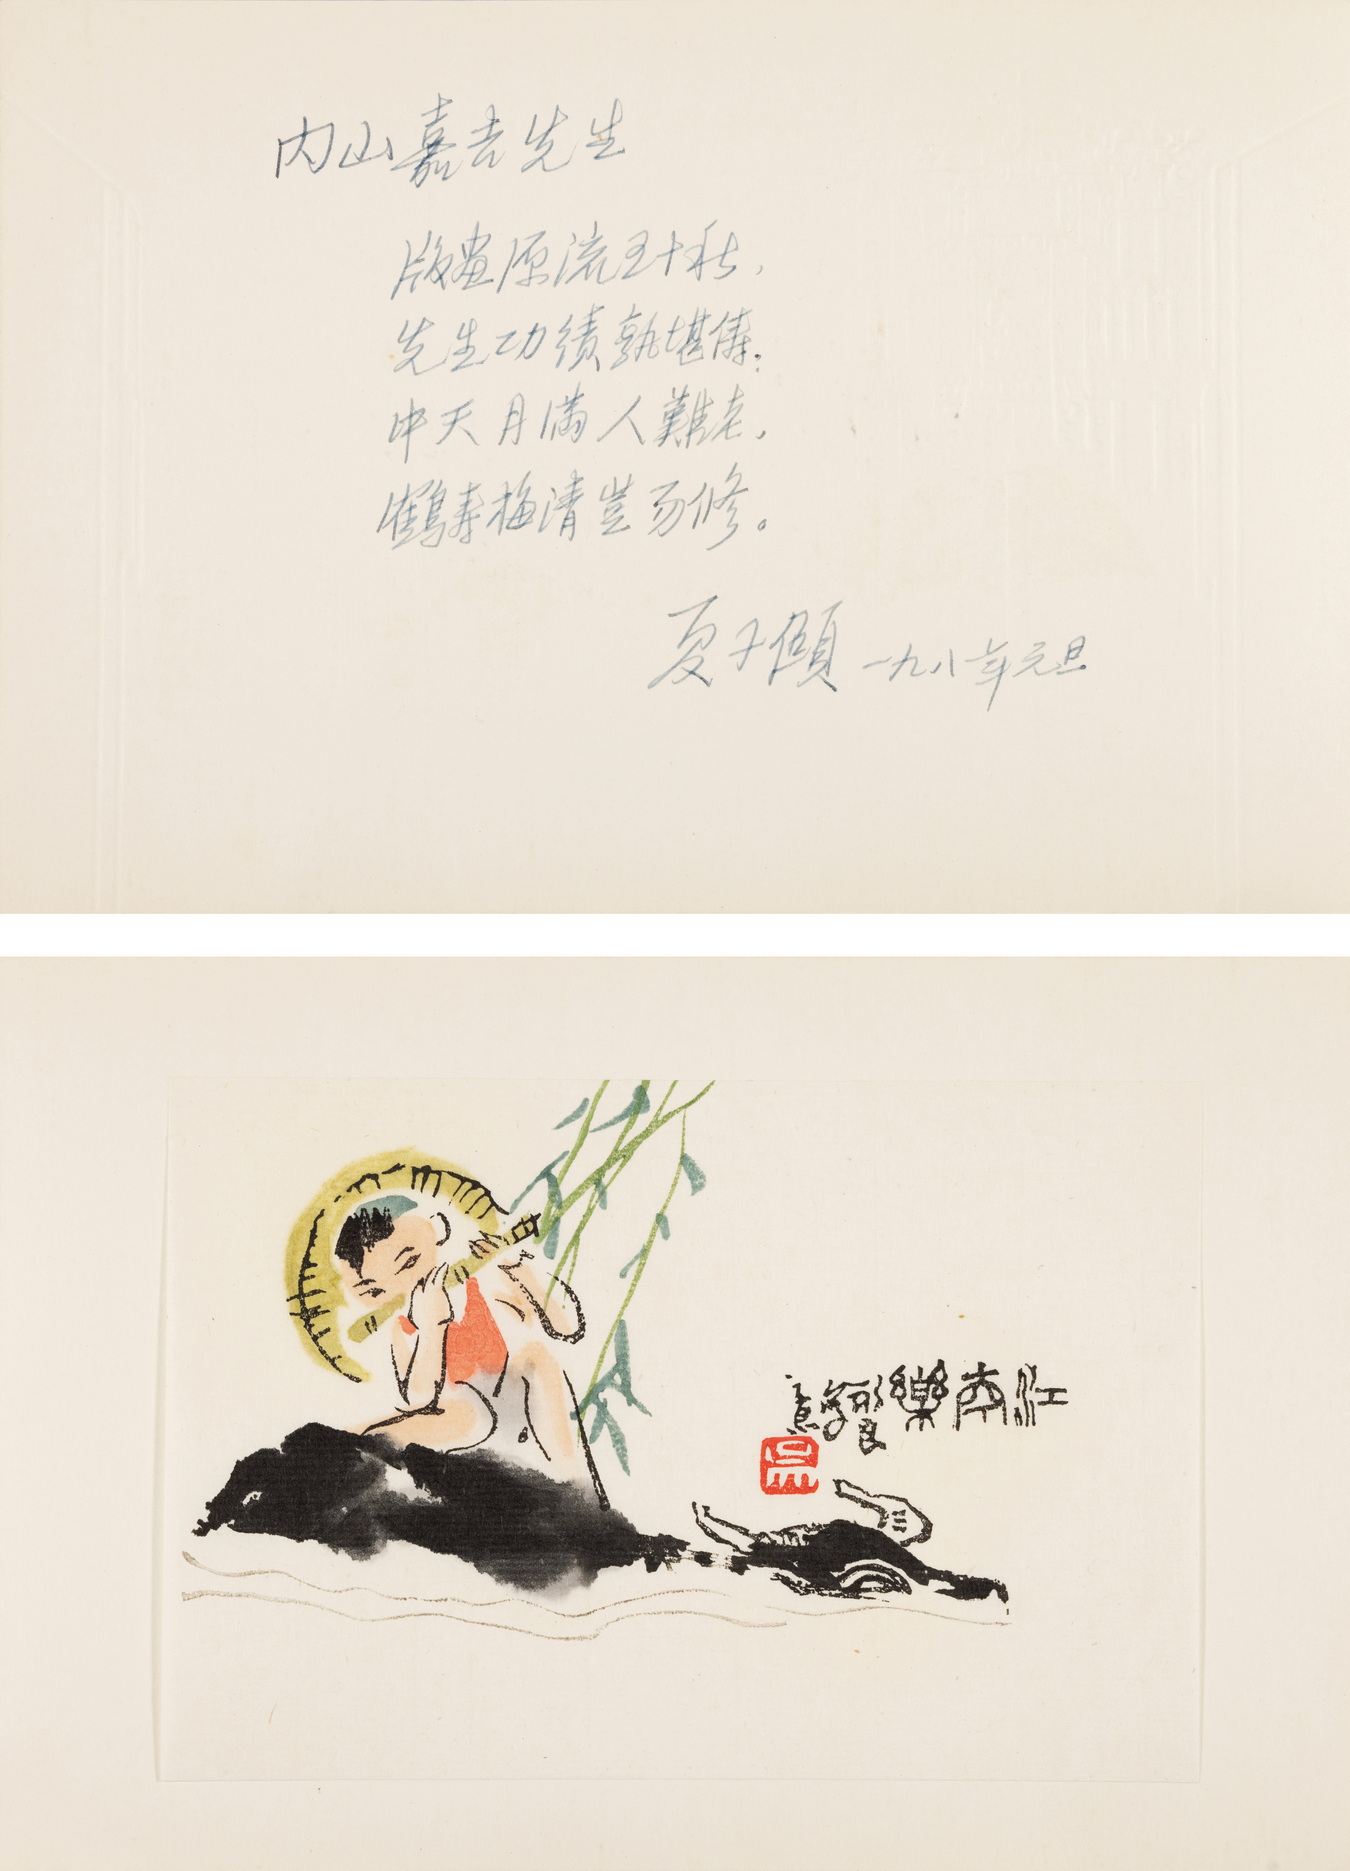 内山嘉吉先生
版畫原流五十秋，
先生功绩孰堪俦；
中天月满人難老，
鶴寿梅清岂易修。
夏子頤 一九八〇年元旦
江南樂
意